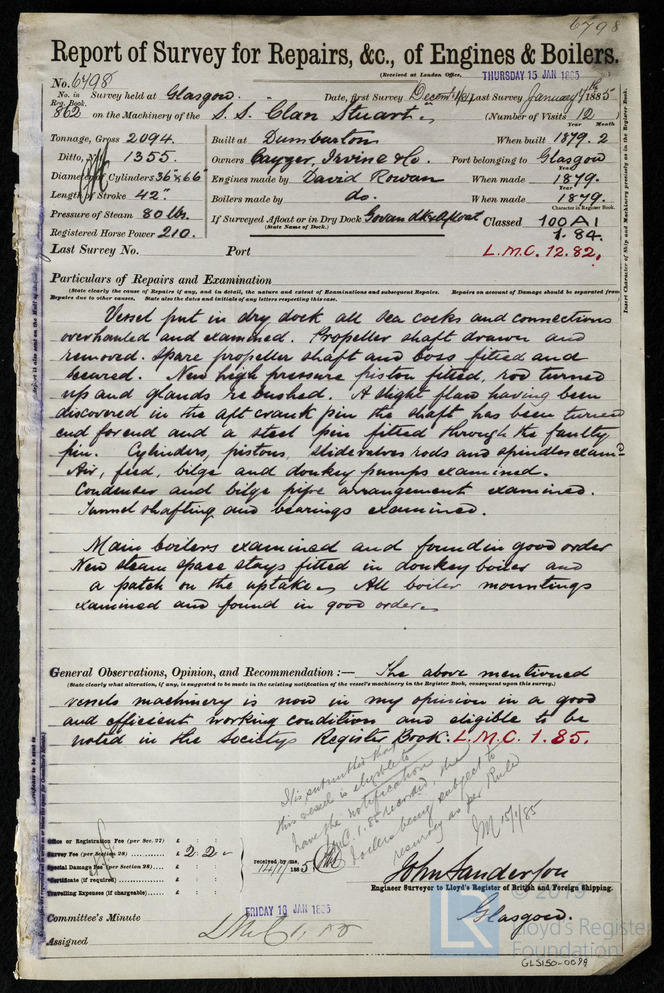 6798
Report of Survey for Repairs, &c., of Engines & Boilers.
(Received at London Office, THURSDAY 15 JAN 1885
No. 6798
No. in Reg. Book. Survey held at Glasgow. Date, first Survey Last Survey January 1885
862 on the Machinery of the S. S. Clan Stuart. (Number of Visits 12
Year Month
Tonnage, Gross 2094. Built at Dumbarton When built 1879. 2
Ditto, 1355. Owners Cayzer, Irvine & Co. Port belonging to Glasgow
Diameter of Cylinders 36" x 66" Engines made by David Rowan When made 1879.
Length of Stroke 42" Boilers made by do. When made 1879.
Pressure of Steam 80 lbs. If Surveyed Afloat or in Dry Dock Govan dk & Afloat Classed 100 A1
(State Name of Dock.) Character in Register Book.
Registered Horse Power 210. 1.84.
Last Survey No. Port L.M.C. 12.82.
Particulars of Repairs and Examination
(State clearly the cause of Repairs if any, and in detail, the nature and extent of Examinations and subsequent Repairs. Repairs on account of Damage should be separated from
Repairs due to other causes. State also the dates and initials of any letters respecting this case.
Vessel put in dry dock all sea cocks and connections
overhauled and examined. Propeller shaft drawn and
removed. Spare propeller shaft and boss fitted and
secured. New high pressure piston fitted, rod turned
up and glands rebushed. A slight flaw having been
discovered in the aft crank pin the shaft has been turned
end for end and a steel pin fitted through the faulty
pin. Cylinders, pistons, slide valves rods and spindles examd
Air, feed, bilge and donkey pumps examined.
Condenser and bilge pipe arrangement examined.
Tunnel shafting and bearings examined.
Main boilers examined and found in good order
New steam space stays fitted in donkey boiler and
a patch on the uptake. All boiler mountings
examined and found in good order.
General Observations, Opinion, and Recommendation :— The above mentioned
(State clearly what alteration, if any, is suggested to be made in the existing notification of the vessel's machinery in the Register Book, consequent upon this survey.)
vessels machinery is now in my opinion in a good
and efficient working condition and eligible to be
noted in the Society's Register Book. L.M.C. 1.85.
It is submitted that
this vessel is eligible to
have the notification
L.M.C. 1.85 recorded, the
boilers being subject to
resurvey as per Rule
15/1/85
Office or Registration Fee (per Sec. 27) £ : :
Survey Fee (per Section 28) £ 2 : 2 : -
Special Damage Fee (per Section 28) £ : :
Certificate (if required) £ : :
Travelling Expenses (if chargeable) £ : :
received by me,
John Sanderson
Engineer Surveyor to Lloyd's Register of British and Foreign Shipping.
Glasgow.
Committee's Minute FRIDAY 16 JAN 1885
Assigned
© 2019
LR
Lloyd's Register
Foundation
GLS150-0099
Insert Character of Ship and Machinery precisely as in the Register Book.